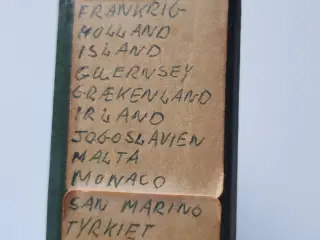 FRANKRIG
HOLLAND
ISLAND
GUERNSEY
GRÆKENLAND
IRLAND
JOGOSLAVIEN
MALTA
MONACO
SAN MARINO
TYRKIET